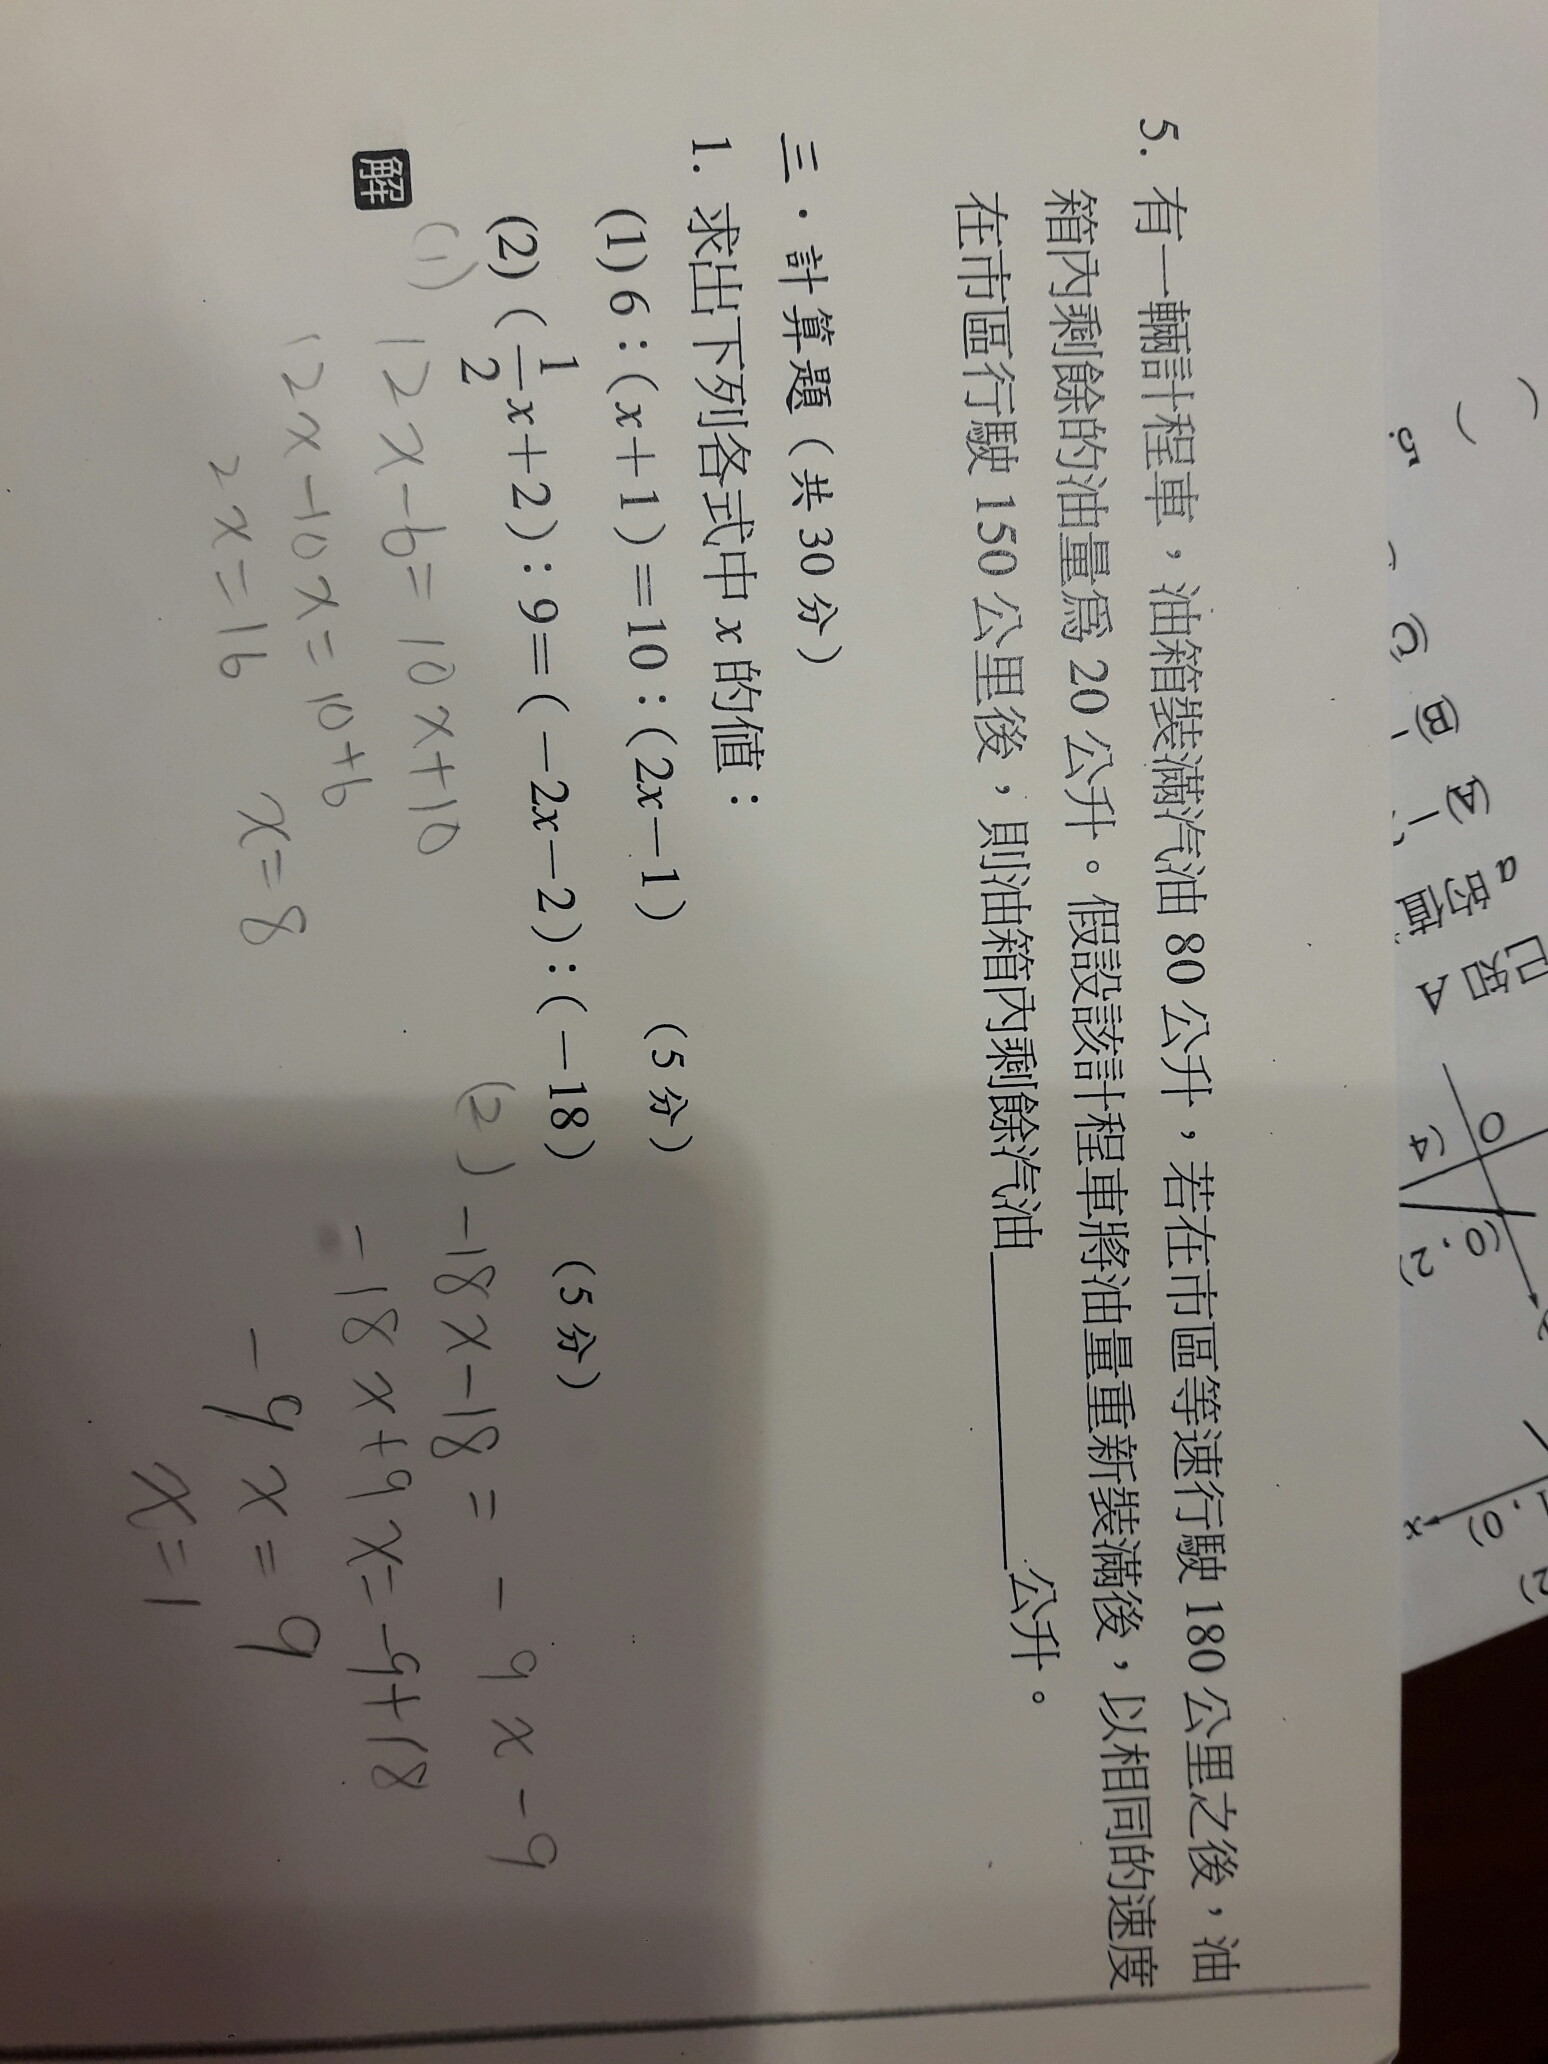 5. 有一輛計程車，油箱裝滿汽油 80 公升，若在市區等速行駛 180 公里之後，油
箱內剩餘的油量為 20 公升。假設該計程車將油量重新裝滿後，以相同的速度
在市區行駛 150 公里後，則油箱內剩餘汽油__________公升。
三．計算題（共 30 分）
1. 求出下列各式中 x 的值：
(1) 6：(x＋1)＝10：(2x－1) （5 分）
(2) (1/2 x＋2)：9＝(－2x－2)：(－18) （5 分）
解
(1) 12x-6=10x+10
12x-10x=10+6
2x=16
x=8
(2) -18x-18=-9x-9
-18x+9x=-9+18
-9x=9
x=1
已知 A
a 的值
(A)
(B)
(C)
5.
O
(0, 2)
x